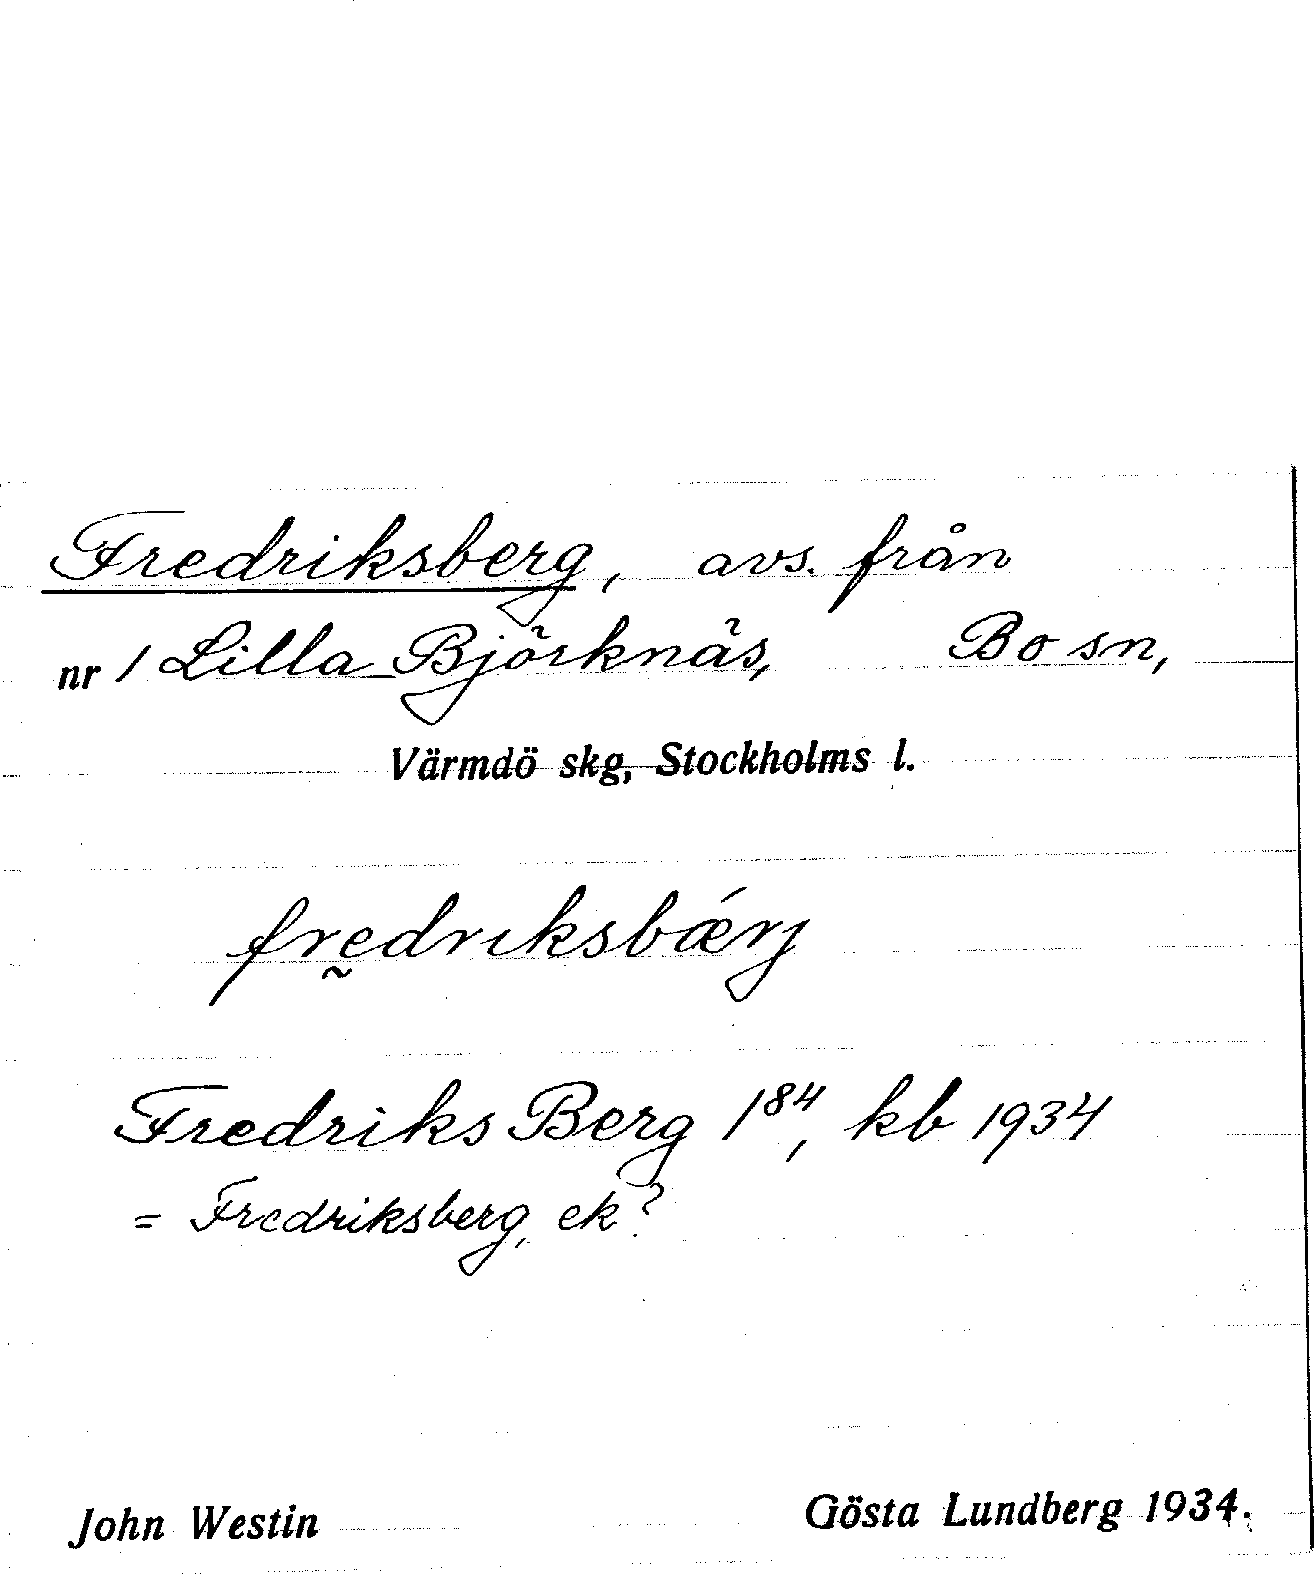 Fredriksberg, avs. från
nr 1 Lilla Björknäs, Bo sn,
Värmdö skg, Stockholms l.
frḛdrıksbǽrj
Fredriks Berg 1⁸⁴, kb 1934
= Fredriksberg, ek?
John Westin Gösta Lundberg 1934.